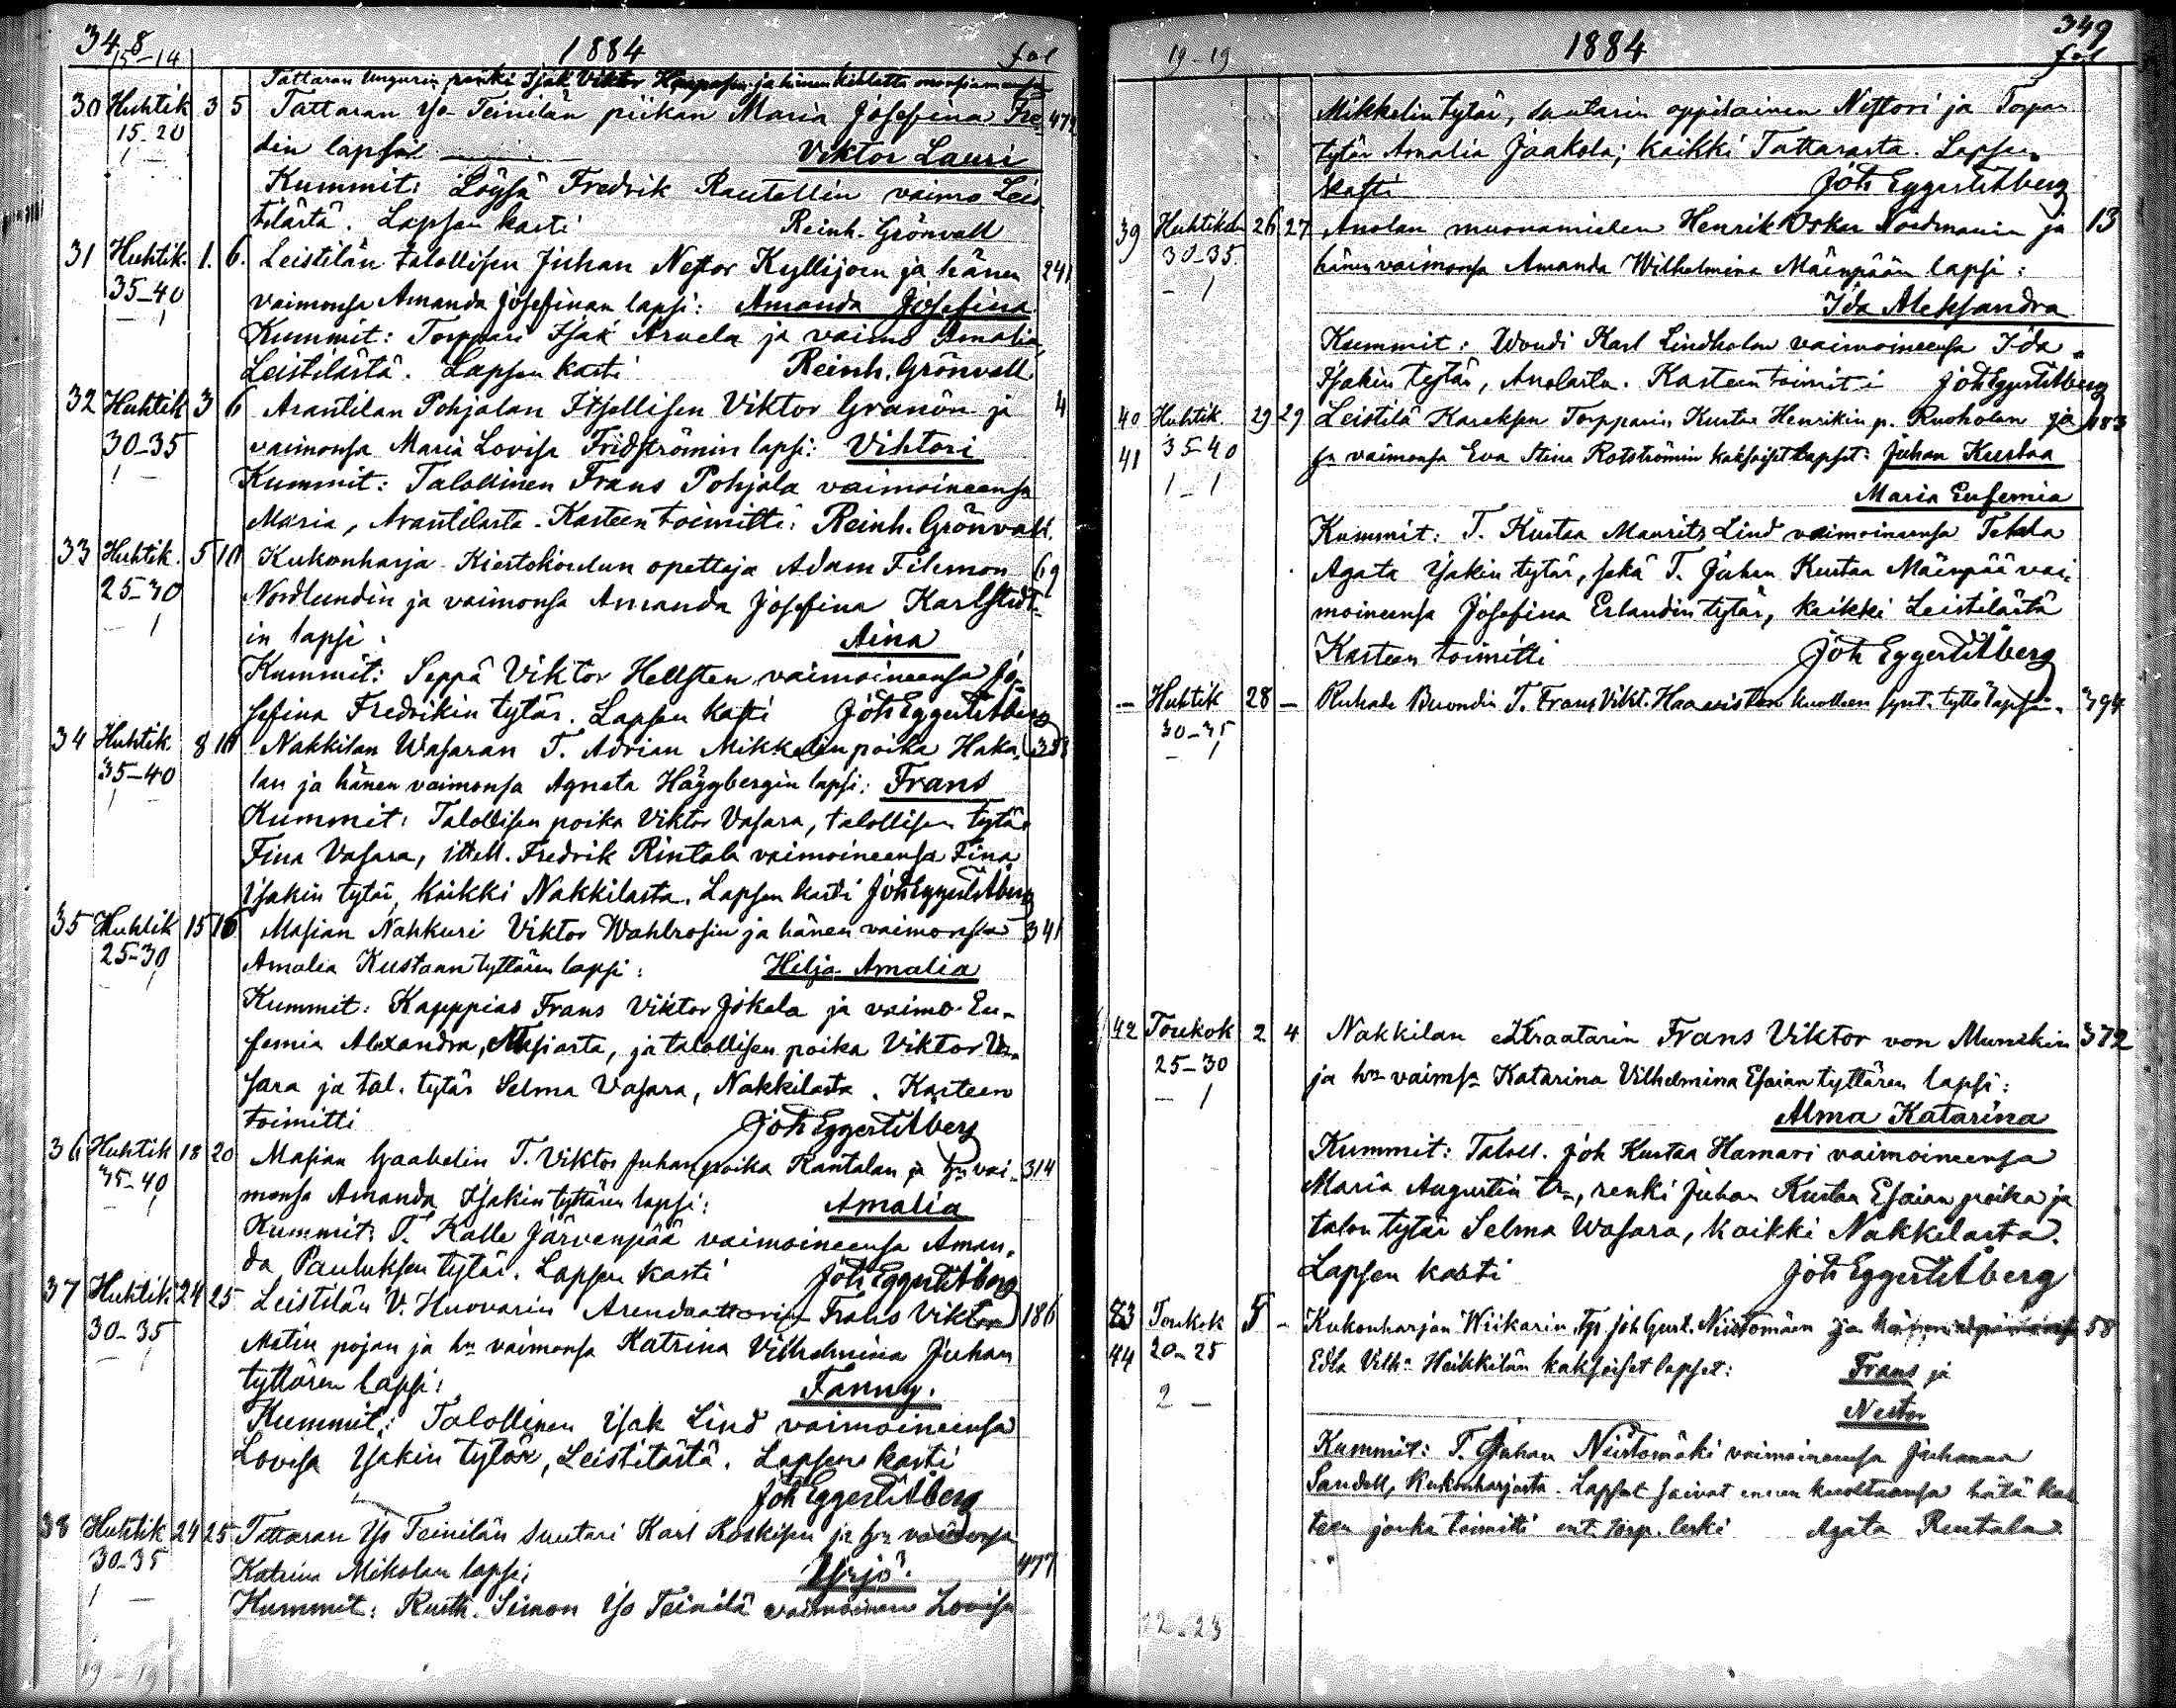 348 1884 fol
15-14
Tattaran Ungurin renki Isak Viktor Haapasen ja hänen kihlattu
30 Huhtik 3 5 Tattaran Yso Teinilän piikan Maria Josefina Fre-
15-20 din lapsi Viktor Lauri
1 - Kummit: Löysä Fredrik Rautellin vaimo Leis-
tilästä. Lapsen kasti Reinh. Grönvall
31 Huhtik. 1. 6. Leistilän talollisen Juhan Nestor Kyllijoen ja hänen 241
35-40 vaimonsa Amanda Josefinan lapsi: Amanda Josefina
- 1 Kummit: Torppari Isak Arvela ja vaimo Amalia,
Leistilästä. Lapsen kasti Reinh. Grönvall
32 Huhtik 3 6 Arantilan Pohjalan Itsellisen Viktor Granön ja 4
30-35 vaimonsa Maria Lovisa Fridströmin lapsi: Vihtori
1 - Kummit: Talollinen Frans Pohjala vaimoineensa
Maria, Arantilasta. Kasteen toimitti: Reinh. Grönvall.
33 Huhtik. 5 10 Kukonharja Kiertokoulun opettaja Adam Filemon 69
25-30 Nordlundin ja vaimonsa Amanda Josefina Karlstedt-
- 1 in lapsi: Aina
Kummit: Seppä Viktor Hellsten vaimoineensa Jo-
sefina Fredrikin tytär. Lapsen kasti Joh Eggert Åberg
34 Huhtik 8 10 Nakkilan Wasaran T. Adrian Mikkelin poika Haka- 358
35-40 lan ja hänen vaimonsa Agneta Häggbergin lapsi: Frans
1 - Kummit: Talollisen poika Viktor Vasara, talollisen tytär
Fina Vasara, itsell. Fredrik Rintala vaimoineensa Fina
Isakin tytär, kaikki Nakkilasta. Lapsen kasti Joh Eggert Åberg
35 Huhtik 15 16 Masian Nahkuri Viktor Wahlrosin ja hänen vaimonsa 341
25-30 Amalia Kustaan tyttären lapsi: Hilja Amalia
- 1 Kummit: Kapppias Frans Viktor Jokala ja vaimo Eu-
femia Alexandra, Masiasta, ja talollisen poika Viktor Va-
sara ja tal. tytär Selma Vasara, Nakkilasta. Kasteen
toimitti Joh Eggert Åberg
36 Huhtik 18 20 Masian Gaabelin T. Viktor Juhanpoika Rantalan ja hn vai- 314
35-40 monsa Amanda Isakin tyttären lapsi: Amalia
- 1 Kummit: T. Kalle Järvenpää vaimoineensa Aman-
da Pauluksen tytär. Lapsen kasti Joh Eggert Åberg
37 Huhtik 24 25 Leistilän V. Huovarin Arendaattorin Frans Viktor 186
30-35 Matin pojan ja hn vaimonsa Katrina Vilhelmina Juhan
- 1 tyttären lapsi: Fanny.
Kummit: Talollinen Isak Lind vaimoineensa
Lovisa Isakin tytär, Leistilästä. Lapsen kasti
Joh Eggert Åberg
38 Huhtik 24 25 Tattaran Yso Teinilän Suutari Karl Koskisen ja hn vaimonsa
30-35 Katrina Mikolan lapsi: Yrjö. 477
1 - Kummit: Rusth. Simon Yso Teinilä vaimoineen Lovisa
19-19
349
19-19 1884 fol
Mikkelin tytär, suutarin oppilainen Nestori ja Torpan
tytär Amalia Jaakola; kaikki Tattarasta. Lapsen
kasti Joh Eggert Åberg
39 Huhtik 26 27 Anolan muonamiehen Henrik Oskar Nordmanin ja 13
30-35 hänen vaimonsa Amanda Wilhelmina Mäenpään lapsi:
- 1 Ida Aleksandra
Kummit: Woudi Karl Lindholm vaimoineensa Ida
Isakin tytär, Anolasta. Kasteen toimitti Joh Eggert Åberg
40 Huhtik. 29 29 Leistilä Kareksen Torpparin Kustaa Henrikin p. Ruoholan ja 183
41 35-40 ja vaimonsa Eva Stina Rotströmin kaksoiset lapset: Juhan Kustaa
1 - 1 Maria Eufemia
Kummit: T. Kustaa Maurits Lind vaimoineensa Tekla
Agata Isakin tytär, sekä T. Juhan Kustaa Mäenpää vai-
moineensa Josefina Erlandin tytär, kaikki Leistilästä
Kasteen toimitti Joh Eggert Åberg
- Huhtik 28 - Ruhade Buondin T. Frans Vikt. Haaviston kuolleen synt. tyttölapsi. 394
30-35
- 1
42 Toukok 2 4 Nakkilan Kraatarin Frans Viktor von Munckin 372
25-30 ja hn vaimsa Katarina Vilhelmina Esaian tyttären lapsi:
- 1 Alma Katarina
Kummit: Taloll. Joh Kustaa Hamari vaimoineensa
Maria Augustin tr, renki Juhan Kustaa Esaian poika ja
talon tytär Selma Wasara, kaikki Nakkilasta.
Lapsen kasti Joh Eggert Åberg
43 Toukok 5 - Kukonharjan Wiikarin Joh Gust. Niistomäen ja 58
44 20-25 Edla Vilh. Heikkilän kaksoiset lapset: Frans ja
2 - Nestor
Kummit: T. Juhan Niistomäki vaimoineensa Juhanna
Sandell, Kukonharjasta. Lapset saivat ennen kuoltuansa hätä kas
teen jonka toimitti ent. torp. leski Agata Rentala
22-23